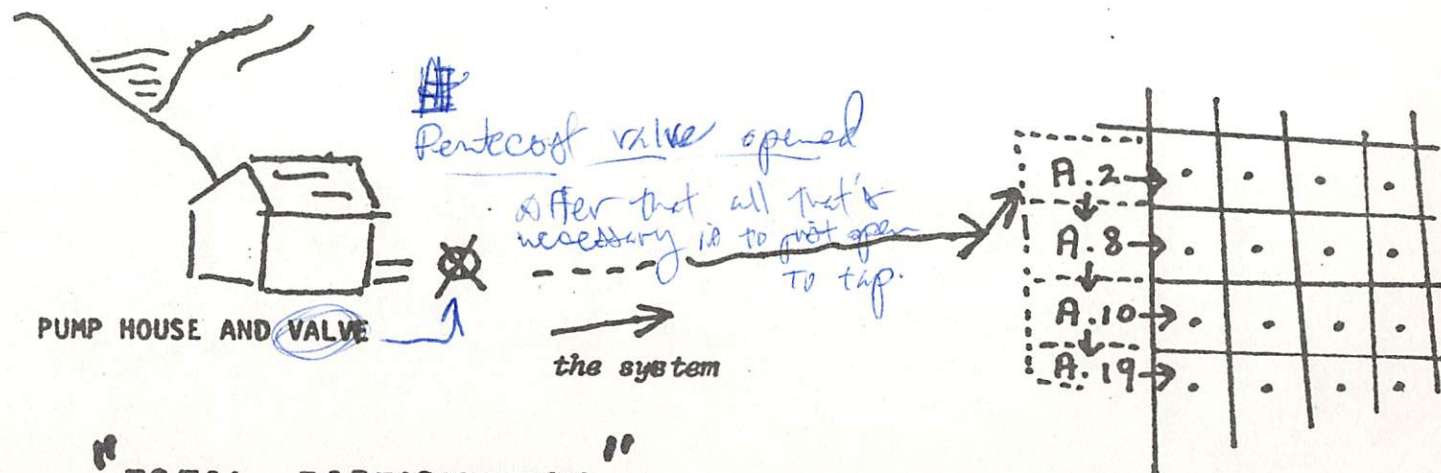 Pentecost valve opened
After that all that's
necessary is to just open
to tap.
PUMP HOUSE AND VALVE
the system
A.2
A.8
A.10
A.19